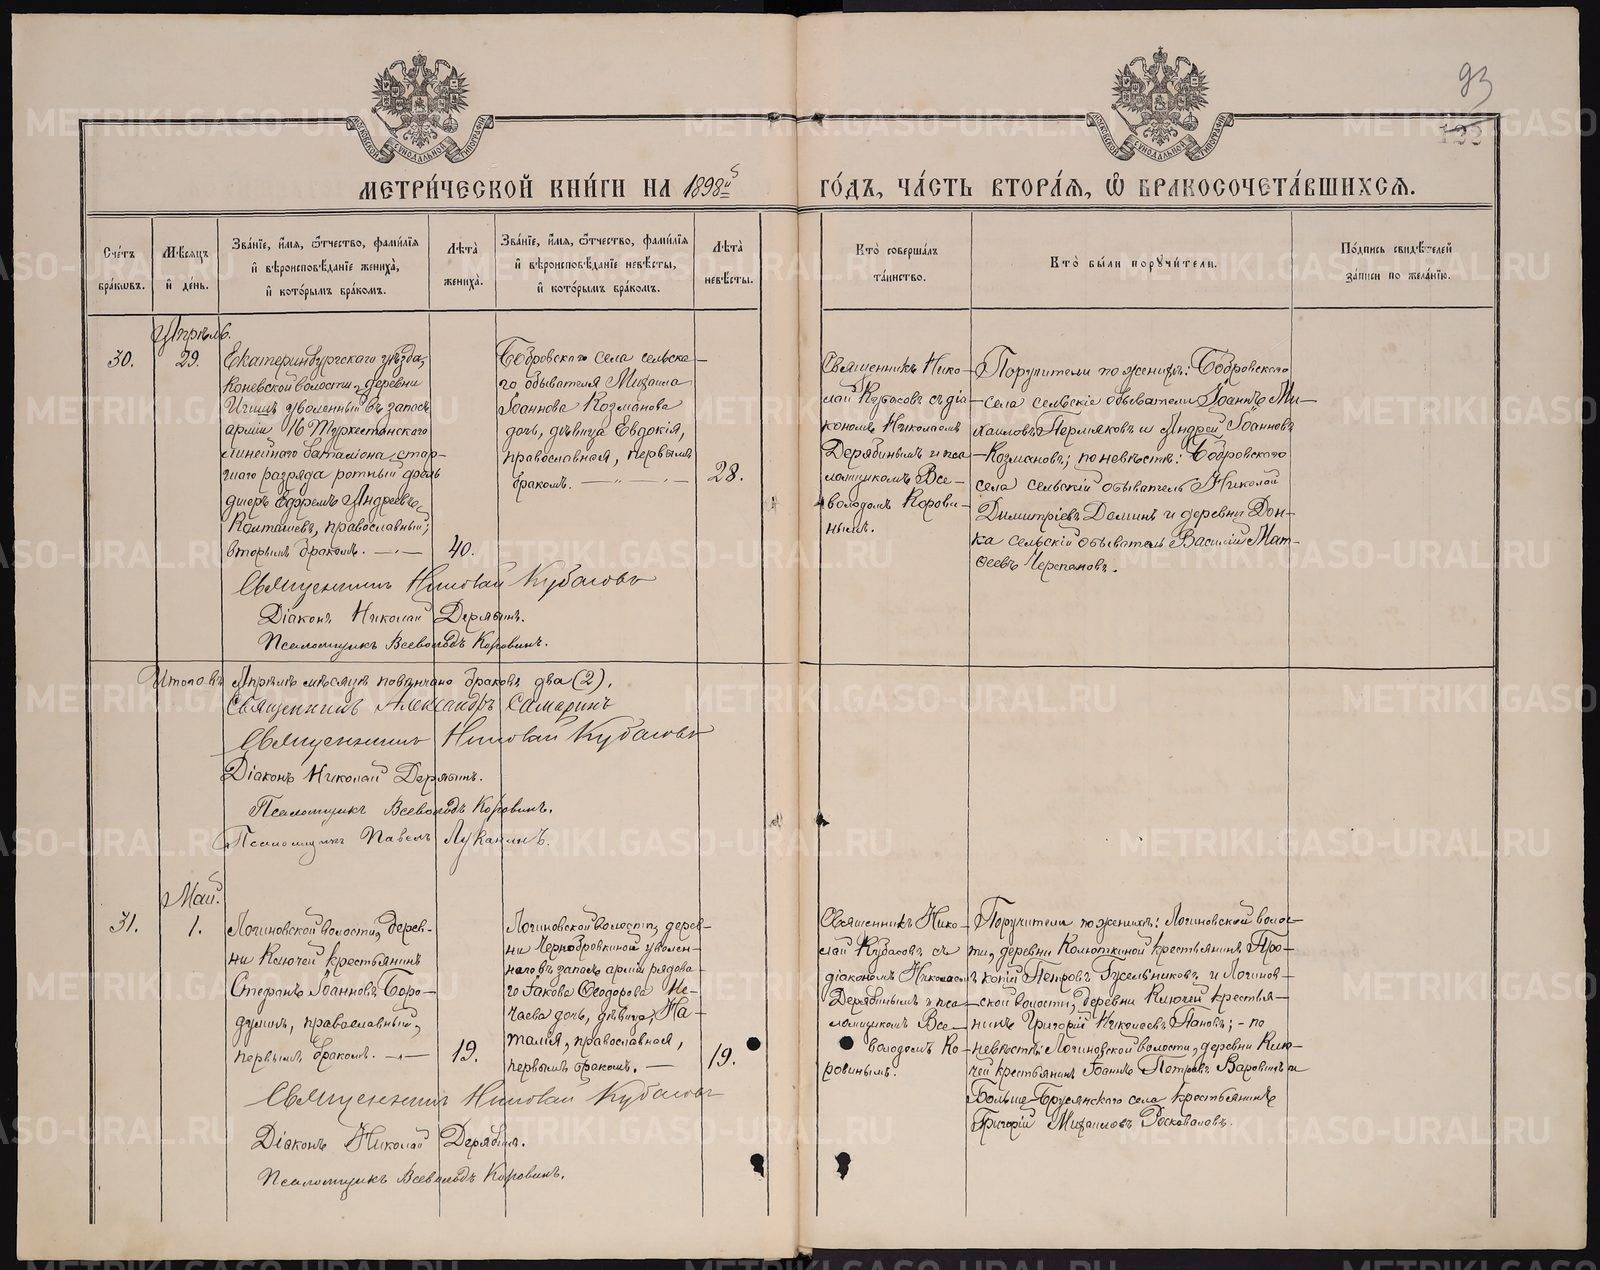 93
133
МОСКОВСКОЙ СѴНОДАЛЬНОЙ ТИПОГРАФІИ
МОСКОВСКОЙ СѴНОДАЛЬНОЙ ТИПОГРАФІИ
МЕТРИ́ЧЕСКОЙ КНИ́ГИ НА 1898й
ГО́ДЪ, ЧА́СТЬ ВТОРА́Я, Ѽ БРАКОСОЧЕТА́ВШИХСЯ.
Сче́тъ бра́ковъ.
Мѣ́сяцъ и́ де́нь.
Зва́нїе, и́мя, ѻ́тчество, фами́лїя и́ вѣроисповѣ́данїе жениха̀, и́ кото́рымъ бра́комъ.
Лѣ́та̀ жениха̀.
Зва́нїе, и́мя, ѻ́тчество, фами́лїя и́ вѣроисповѣ́данїе невѣ́сты, и́ кото́рымъ бра́комъ.
Лѣ́та̀ невѣ́сты.
Кто̀ соверша́лъ та́инство.
Кто̀ бы́ли порꙋчи́тели.
По́дпись свидѣ́телей за́писи по жела́нїю.
Апрѣль.
30.
29.
Екатеринбургского уѣзда,
Коневской волости, деревни
Игишъ уволенный въ запасъ
арміи 16 Туркестанского
линейного баталіона стар-
шаго разряда ротный фель
дшеръ Ефремъ Андреевъ
Колташевъ, православный;
вторымъ бракомъ.
40.
Бобровскаго села сельска-
го обывателя Михаила
Іоаннова Козманова
дочь, дѣвица Евдокія,
православная, первымъ
бракомъ.
28.
Священникъ Нико-
лай Кубасовъ съ діа
кономъ Николаемъ
Дерябинымъ и пса
ломщикомъ Все-
володомъ Корови-
нымъ.
Поручители по женихѣ: Бобровскаго
села сельскіе обыватели Іоаннъ Ми-
хаиловъ Пермяковъ и Андрей Іоанновъ
Козмановъ; по невѣстѣ: Бобровскаго
села сельскій обыватель Николай
Димитріевъ Доминъ и деревни Фон-
ка сельскій обыватель Василій Мат-
ѳеевъ Черепановъ.
Священникъ Николай Кубасовъ
Діаконъ Николай Дерябинъ.
Псаломщикъ Всеволодъ Коровинъ.
Итого въ Апрѣлѣ мѣсяцѣ повѣнчано браковъ два (2).
Священникъ Александръ Самаринъ
Священникъ Николай Кубасовъ
Діаконъ Николай Дерябинъ.
Псаломщикъ Всеволодъ Коровинъ.
Псаломщикъ Павелъ Луканинъ.
Май.
31.
1.
Логиновской волости, дерев-
ни Ключей крестьянинъ
Стефанъ Іоанновъ Боро-
дулинъ, православный,
первымъ бракомъ.
19.
Логиновской волости, дерев-
ни Чернобровкиной уволен-
наго въ запасъ арміи рядова-
го Іакова Ѳеодорова Не-
чаева дочь, дѣвица, На-
талія, православная,
первымъ бракомъ.
19.
Священникъ Нико-
лай Кубасовъ съ
діакономъ Николаемъ
Дерябинымъ и пса-
ломщикомъ Все-
володомъ Ко-
ровинымъ.
Поручители по женихѣ: Логиновской волос-
ти, деревни Колюткиной крестьянинъ Про-
копій Петровъ Гусельниковъ и Логинов-
ской волости, деревни Ключей крестья-
нинъ Григорій Николаевъ Пановъ; - по
невѣстѣ: Логиновской волости, деревни Клю-
чей крестьянинъ Іоаннъ Петровъ Воровинъ и
Больше-Брусянскаго села крестьянинъ
Григорій Михаиловъ Росковаловъ.
Священникъ Николай Кубасовъ
Діаконъ Николай Дерябинъ.
Псаломщикъ Всеволодъ Коровинъ.
METRIKI.GASO-URAL.RU